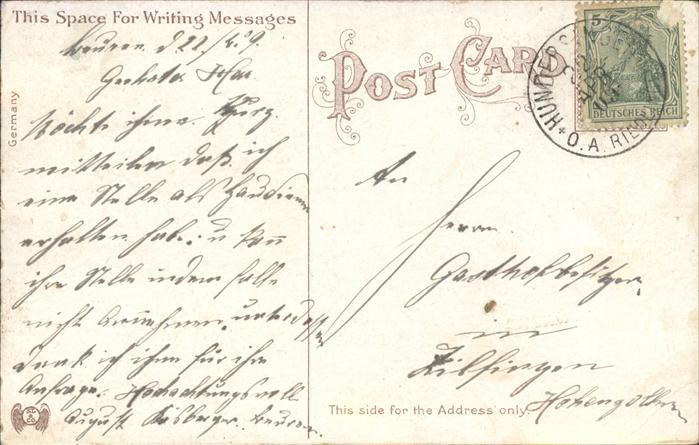 This Space For Writing Messages
Beuren. d 22/4. 09.
Geehrter Herr
Möchte ihnen Kurz
mitteilen daß ich
eine Stelle als Hausdiener
erhalten habe. u kann
ihre Stelle in dem Falle
nicht annehmen, unterdessen
dank ich ihnen für ihre
Anfrage. Hochachtungsvoll
August Beuren.
Germany
POST CARD
5
DEUTSCHES REICH
HUNDERSINGEN
O.A. RIEDL
An
Herrn
Gasthofbesitzer
in
Hohenzollern
This side for the Address only.